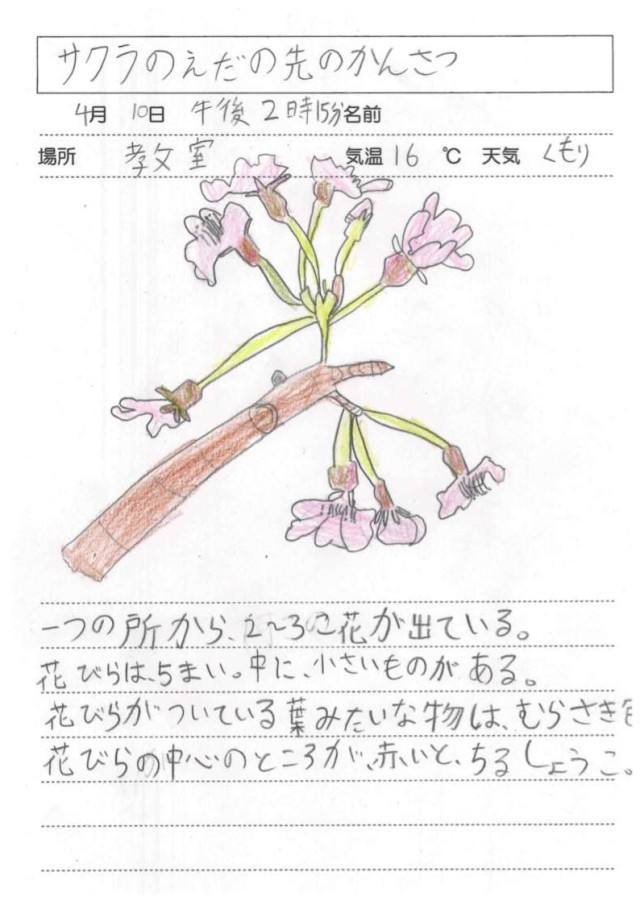 サクラのえだの先のかんさつ
4月 10日 午後 2時15分 名前
場所 教室 気温 16 ℃ 天気 くもり
一つの所から、2〜3こ花が出ている。
花びらは、5まい。中に、小さいものがある。
花びらがついている葉みたいな物は、むらさき色
花びらの中心のところが、赤いと、ちるしょうこ。